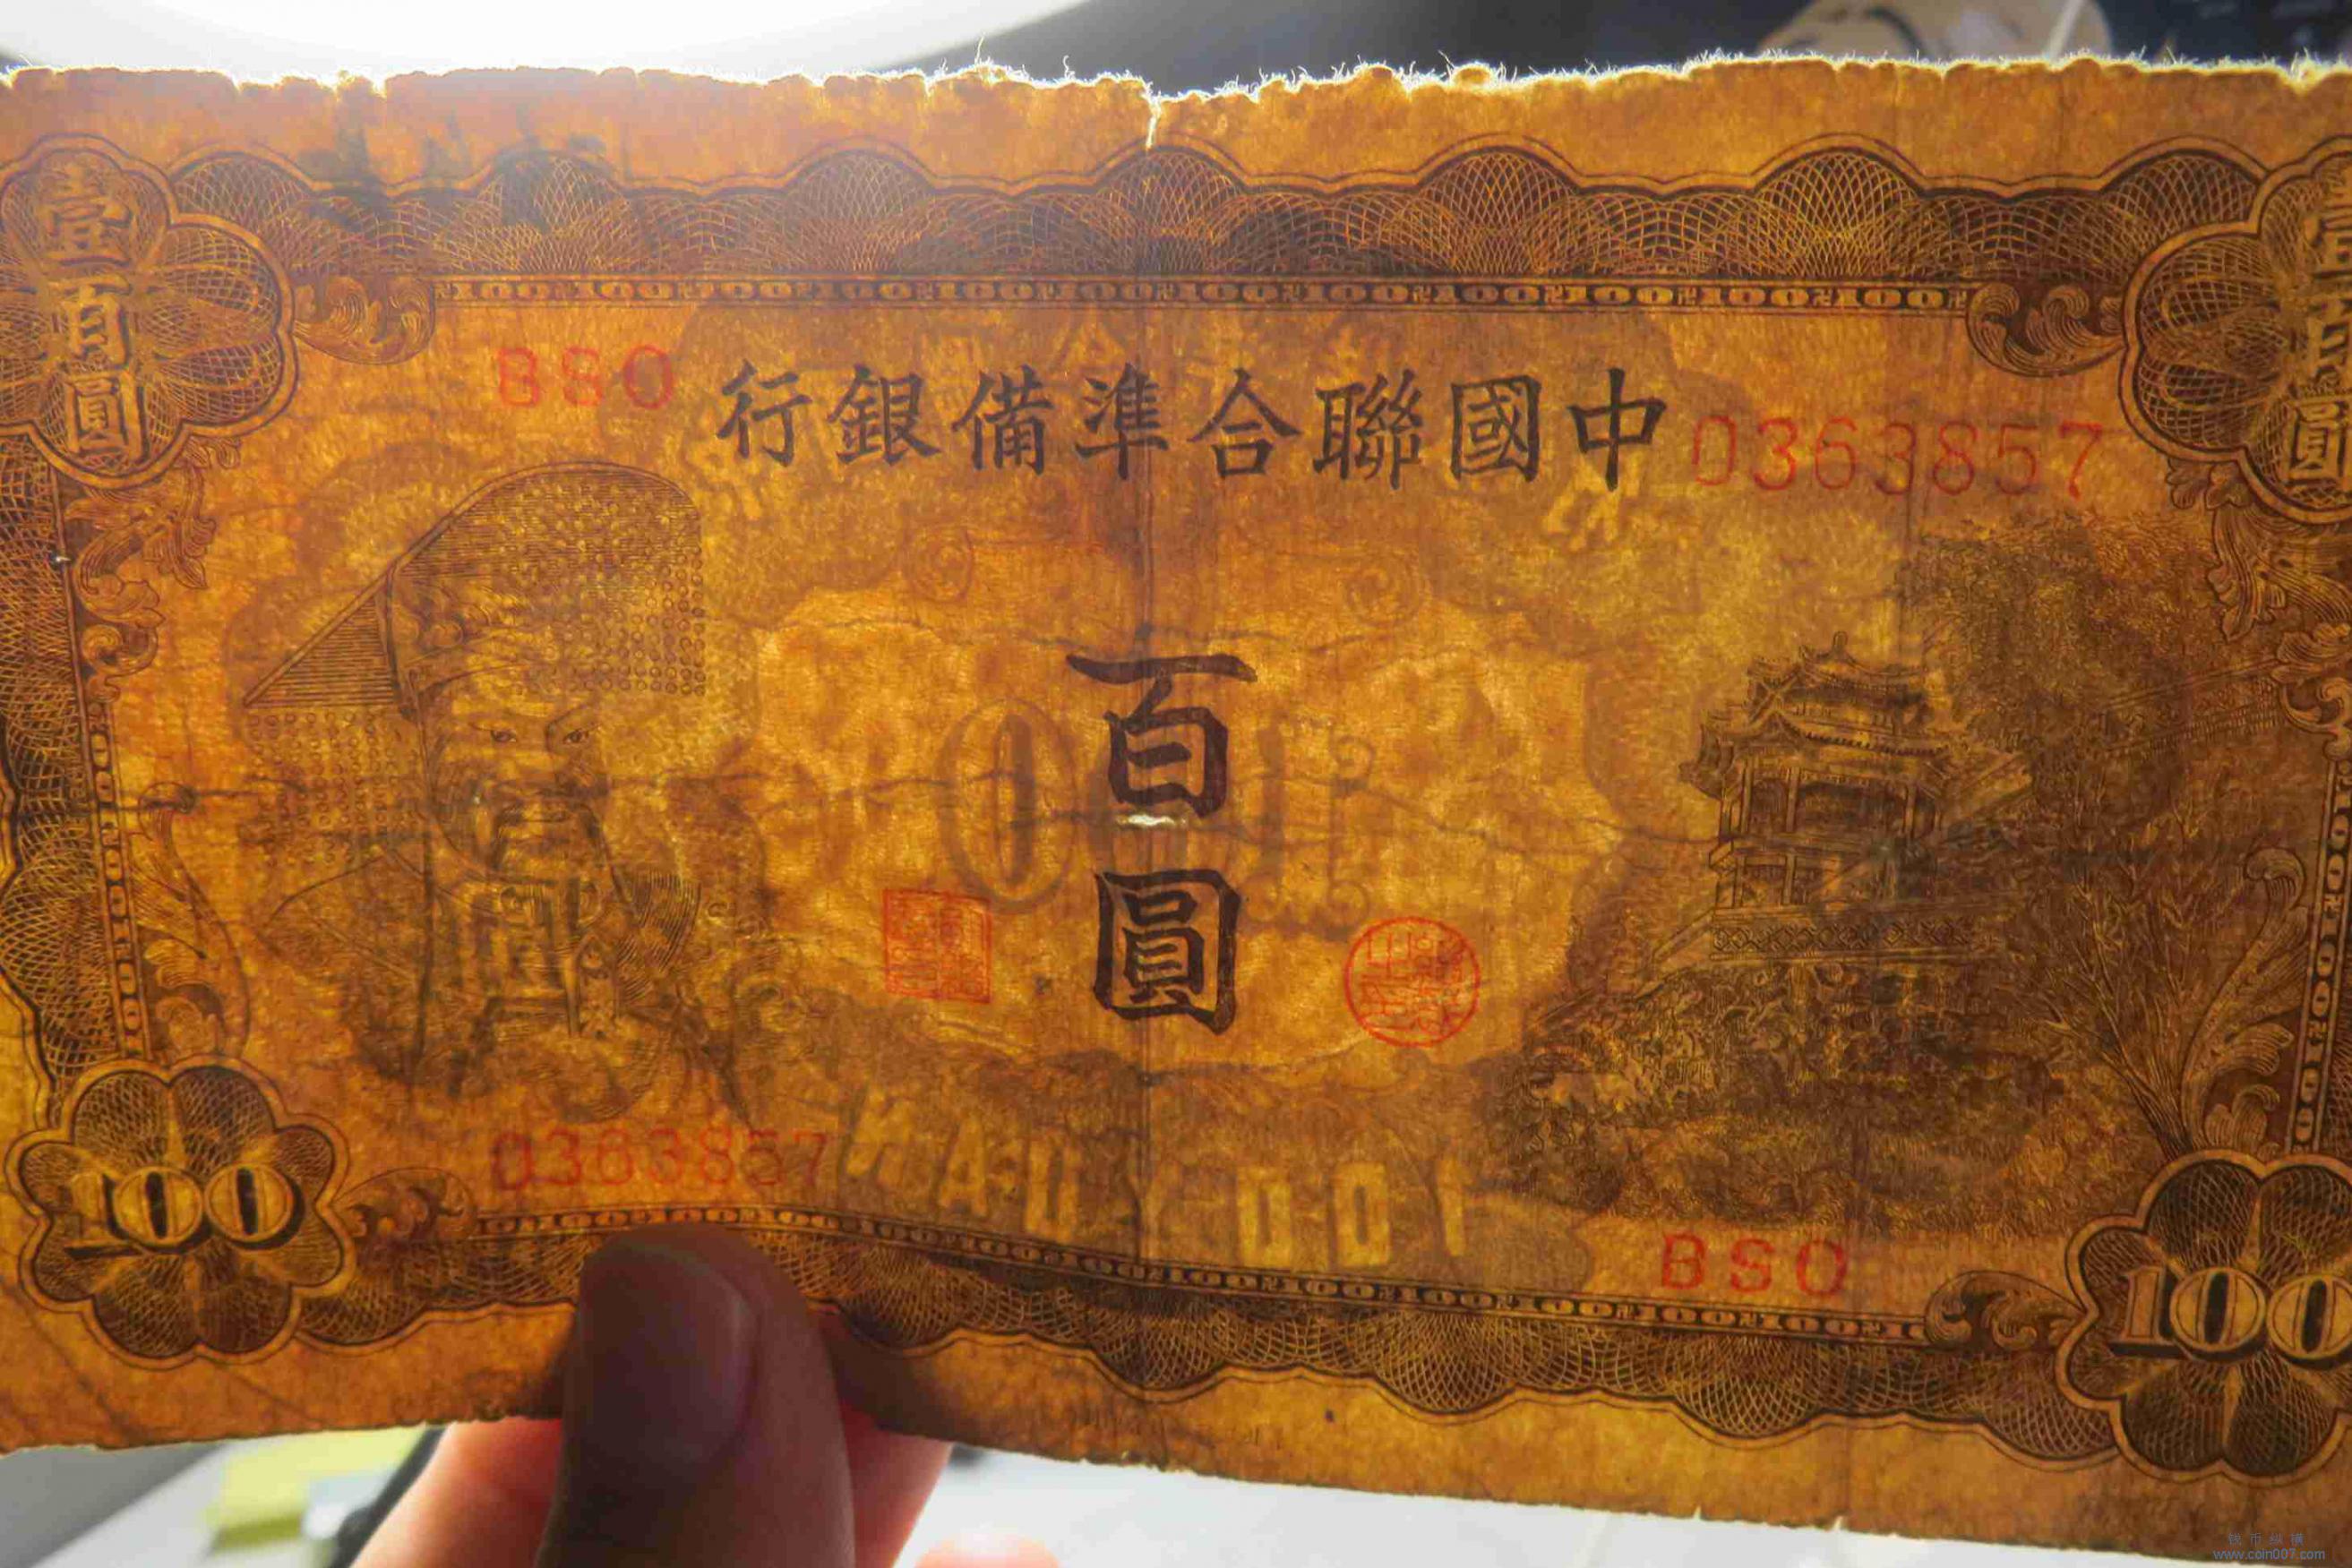 壹百圓
壹百圓
BSO
行銀備準合聯國中
0363857
百圓
0363857
BSO
100
100
钱币纵横
www.coin007.com